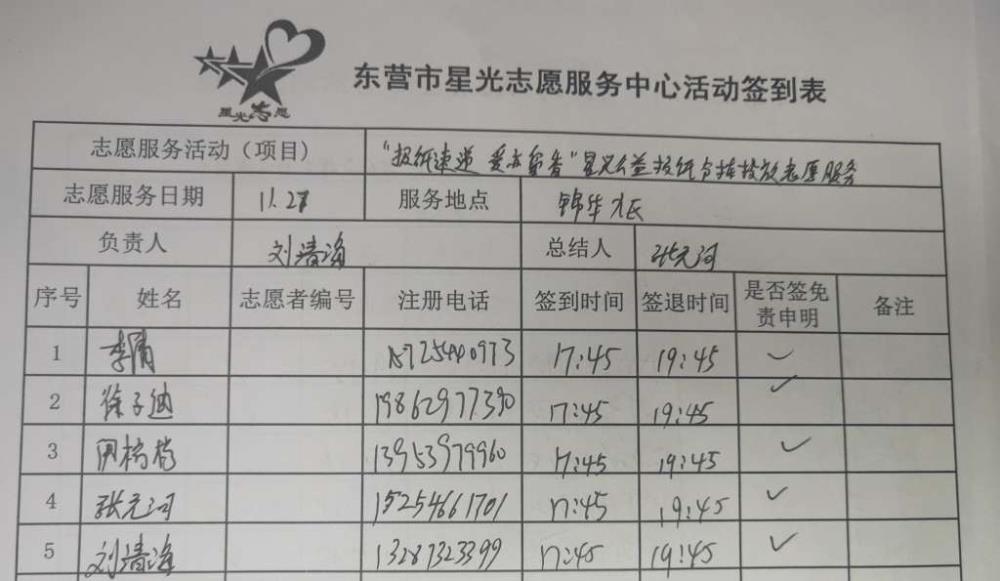 星光志愿
东营市星光志愿服务中心活动签到表
志愿服务活动（项目） "报纸速递 爱亦馨香"星光公益报纸分拣投放志愿服务
志愿服务日期 11.27 服务地点 锦华
负责人 刘清海 总结人 张元河
序号 姓名 志愿者编号 注册电话 签到时间 签退时间 是否签免责申明 备注
1 李倩 15725440973 17:45 19:45 ✓
2 徐子迪 19862977390 17:45 19:45 ✓
3 13953979960 17:45 19:45 ✓
4 张元河 15254661701 17:45 19:45 ✓
5 刘清海 13287323399 17:45 19:45 ✓